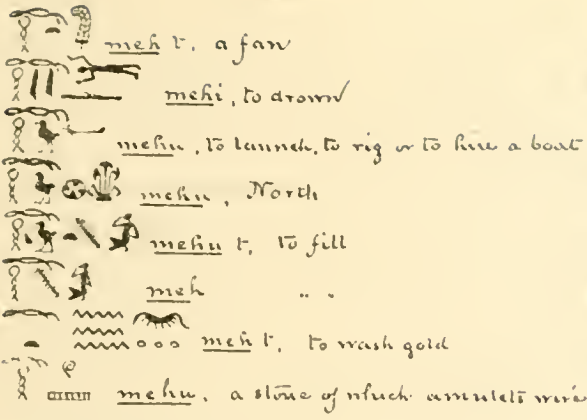 meh t, a fan
mehi, to drown
mehu, to launch, to rig or to hire a boat
mehu, North
mehu t, to fill
meh " "
meh t, to wash gold
mehu, a stone of which amulets were